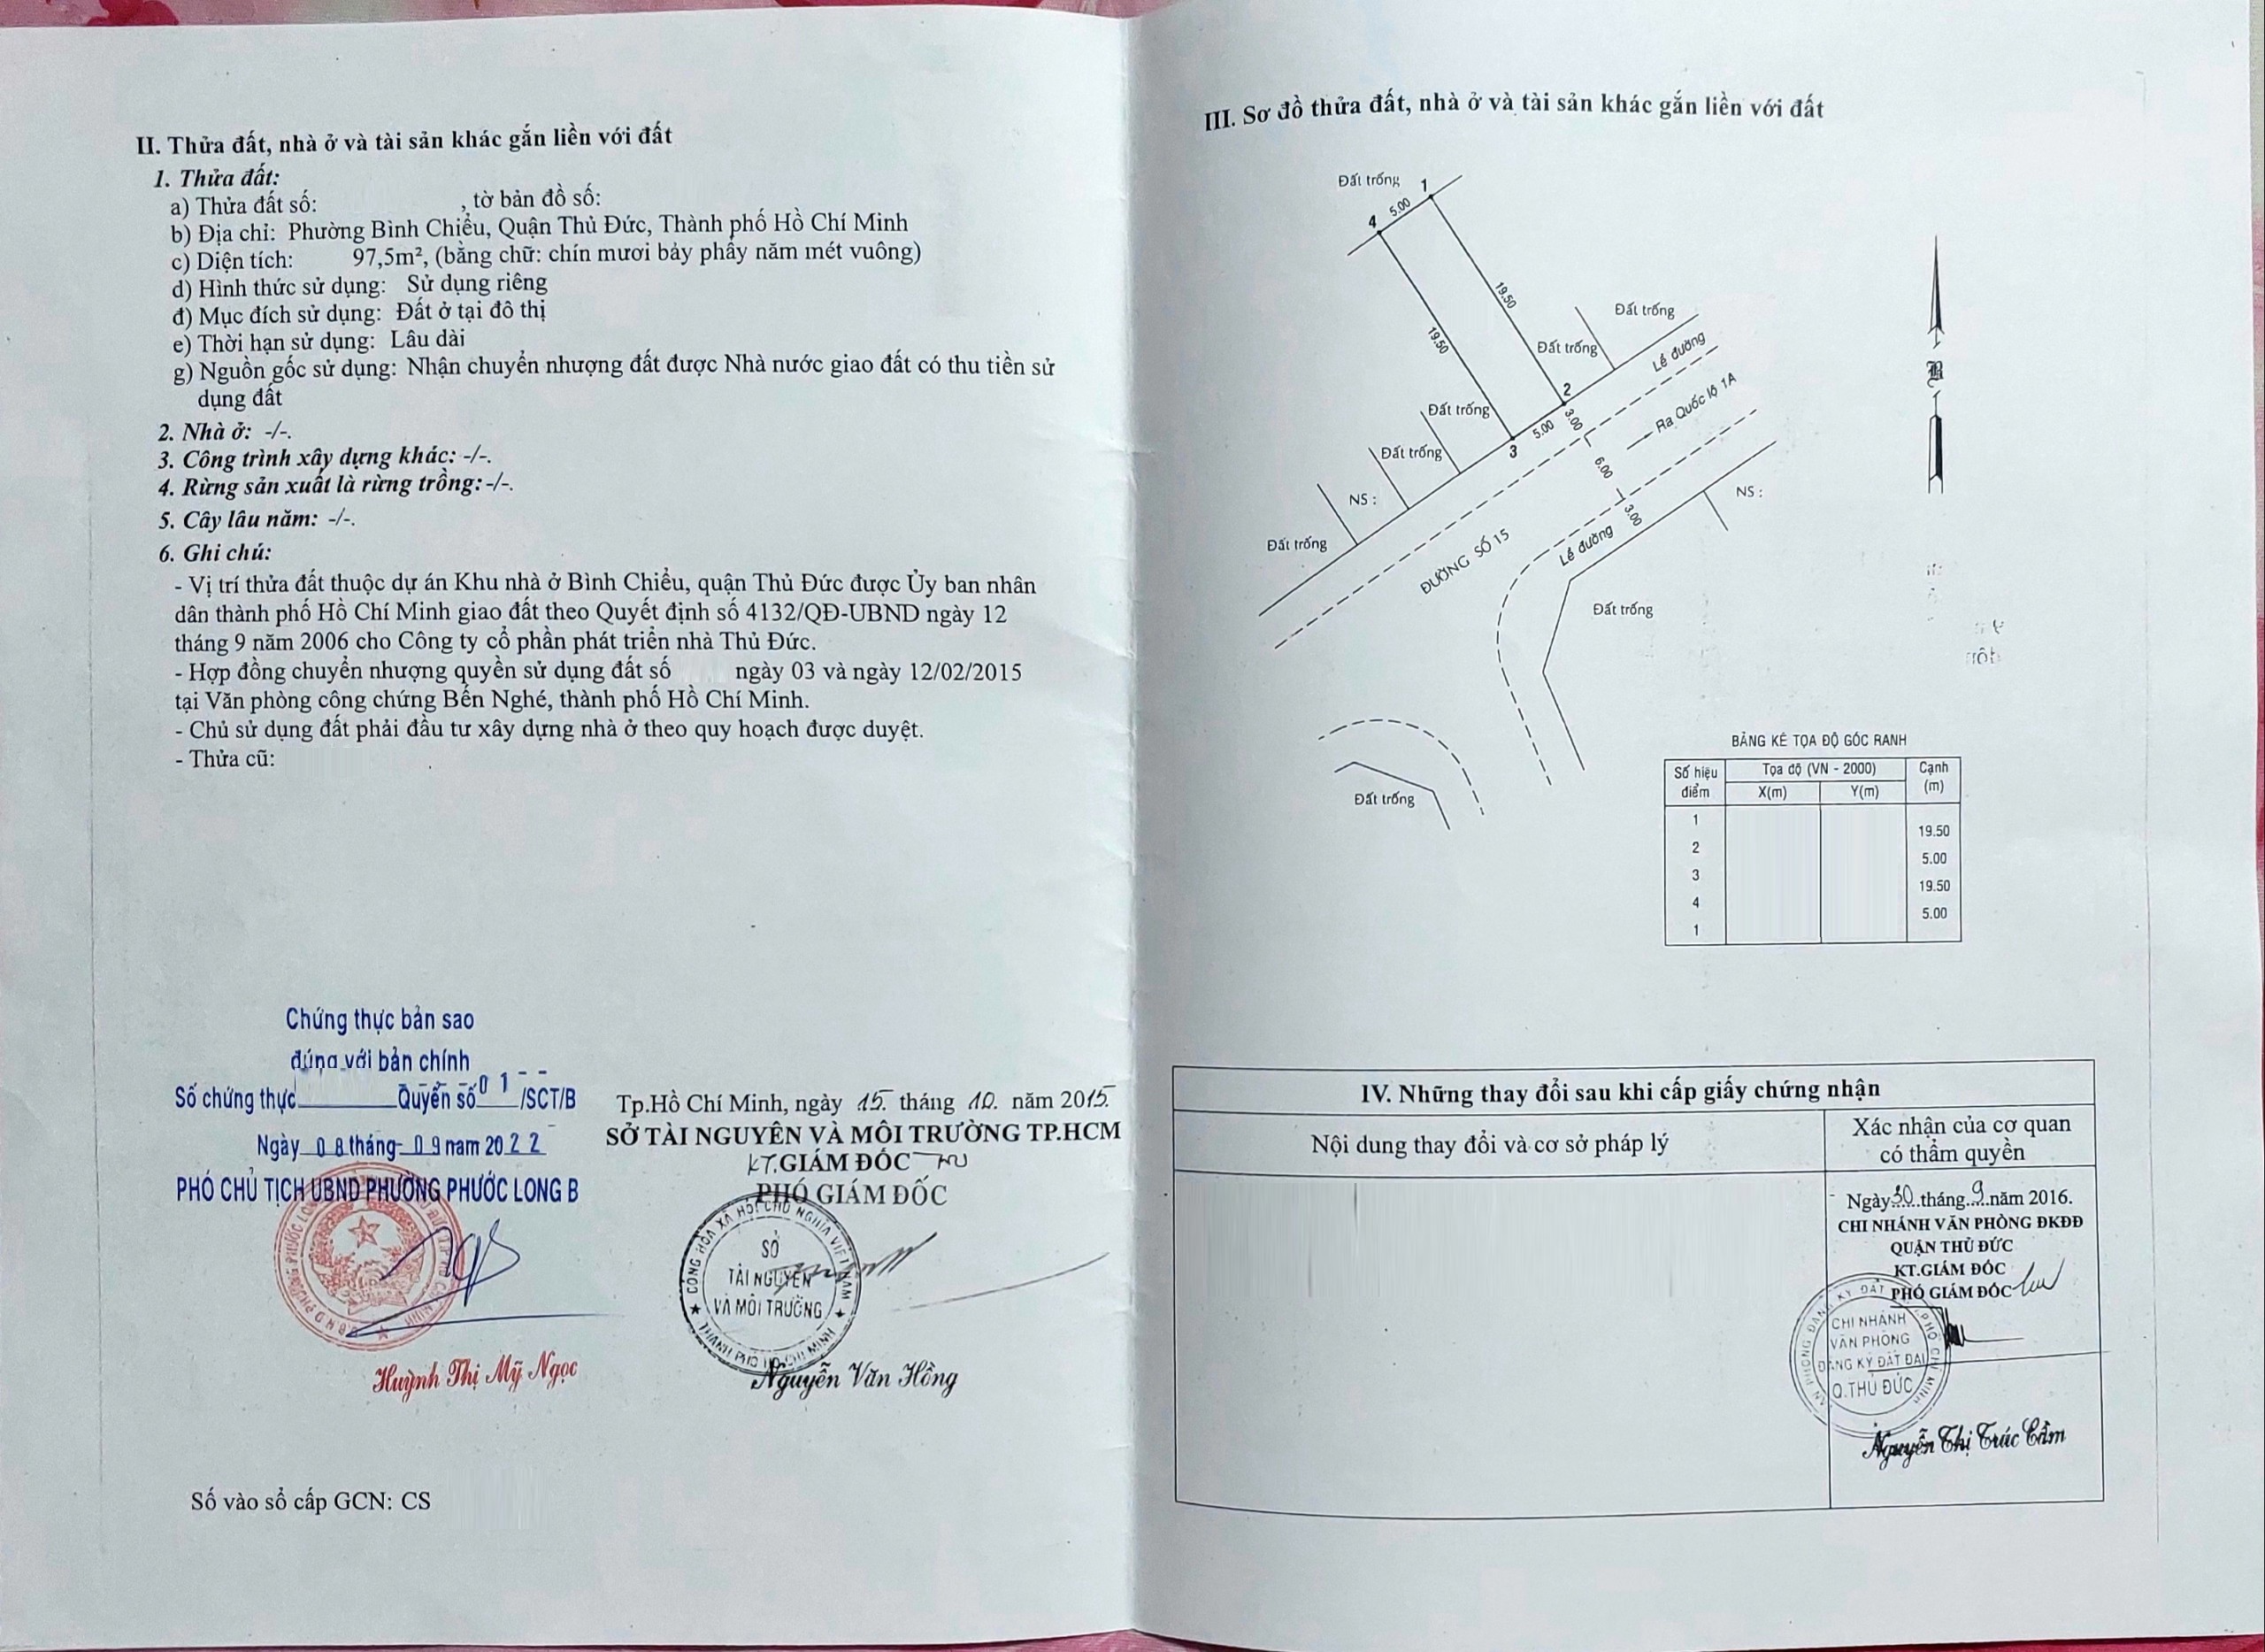 II. Thửa đất, nhà ở và tài sản khác gắn liền với đất
1. Thửa đất:
a) Thửa đất số: , tờ bản đồ số:
b) Địa chỉ: Phường Bình Chiểu, Quận Thủ Đức, Thành phố Hồ Chí Minh
c) Diện tích: 97,5m², (bằng chữ: chín mươi bảy phẩy năm mét vuông)
d) Hình thức sử dụng: Sử dụng riêng
đ) Mục đích sử dụng: Đất ở tại đô thị
e) Thời hạn sử dụng: Lâu dài
g) Nguồn gốc sử dụng: Nhận chuyển nhượng đất được Nhà nước giao đất có thu tiền sử
dụng đất
2. Nhà ở: -/-.
3. Công trình xây dựng khác: -/-.
4. Rừng sản xuất là rừng trồng: -/-.
5. Cây lâu năm: -/-.
6. Ghi chú:
- Vị trí thửa đất thuộc dự án Khu nhà ở Bình Chiểu, quận Thủ Đức được Ủy ban nhân
dân thành phố Hồ Chí Minh giao đất theo Quyết định số 4132/QĐ-UBND ngày 12
tháng 9 năm 2006 cho Công ty cổ phần phát triển nhà Thủ Đức.
- Hợp đồng chuyển nhượng quyền sử dụng đất số ngày 03 và ngày 12/02/2015
tại Văn phòng công chứng Bến Nghé, thành phố Hồ Chí Minh.
- Chủ sử dụng đất phải đầu tư xây dựng nhà ở theo quy hoạch được duyệt.
- Thửa cũ:
Chứng thực bản sao
đúng với bản chính
Số chứng thực Quyển số 01 /SCT/B
Ngày 08 tháng 09 năm 2022
PHÓ CHỦ TỊCH UBND PHƯỜNG PHƯỚC LONG B
Huỳnh Thị Mỹ Ngọc
Tp.Hồ Chí Minh, ngày 15 tháng 10 năm 2015
SỞ TÀI NGUYÊN VÀ MÔI TRƯỜNG TP.HCM
KT.GIÁM ĐỐC
PHÓ GIÁM ĐỐC
CỘNG HÒA XÃ HỘI CHỦ NGHĨA VIỆT NAM
SỞ
TÀI NGUYÊN
VÀ MÔI TRƯỜNG
THÀNH PHỐ HỒ CHÍ MINH
Nguyễn Văn Hồng
Số vào sổ cấp GCN: CS
III. Sơ đồ thửa đất, nhà ở và tài sản khác gắn liền với đất
Đất trống
1
5.00
4
19.50
19.50
Đất trống
Đất trống
Lề đường
2
3.00
Ra Quốc lộ 1A
Đất trống
5.00
3
Đất trống
6.00
NS :
NS :
3.00
Đất trống
ĐƯỜNG SỐ 15
Lề đường
Đất trống
Đất trống
B
BẢNG KÊ TỌA ĐỘ GÓC RANH
Số hiệu điểm Tọa độ (VN - 2000) Cạnh (m)
X(m) Y(m)
1
19.50
2
5.00
3
19.50
4
5.00
1
IV. Những thay đổi sau khi cấp giấy chứng nhận
Nội dung thay đổi và cơ sở pháp lý
Xác nhận của cơ quan
có thẩm quyền
Ngày 30 tháng 9 năm 2016.
CHI NHÁNH VĂN PHÒNG ĐKĐĐ
QUẬN THỦ ĐỨC
KT.GIÁM ĐỐC
PHÓ GIÁM ĐỐC
CHI NHÁNH
VĂN PHÒNG
ĐĂNG KÝ ĐẤT ĐAI
Q.THỦ ĐỨC
Nguyễn Thị Trúc Cầm